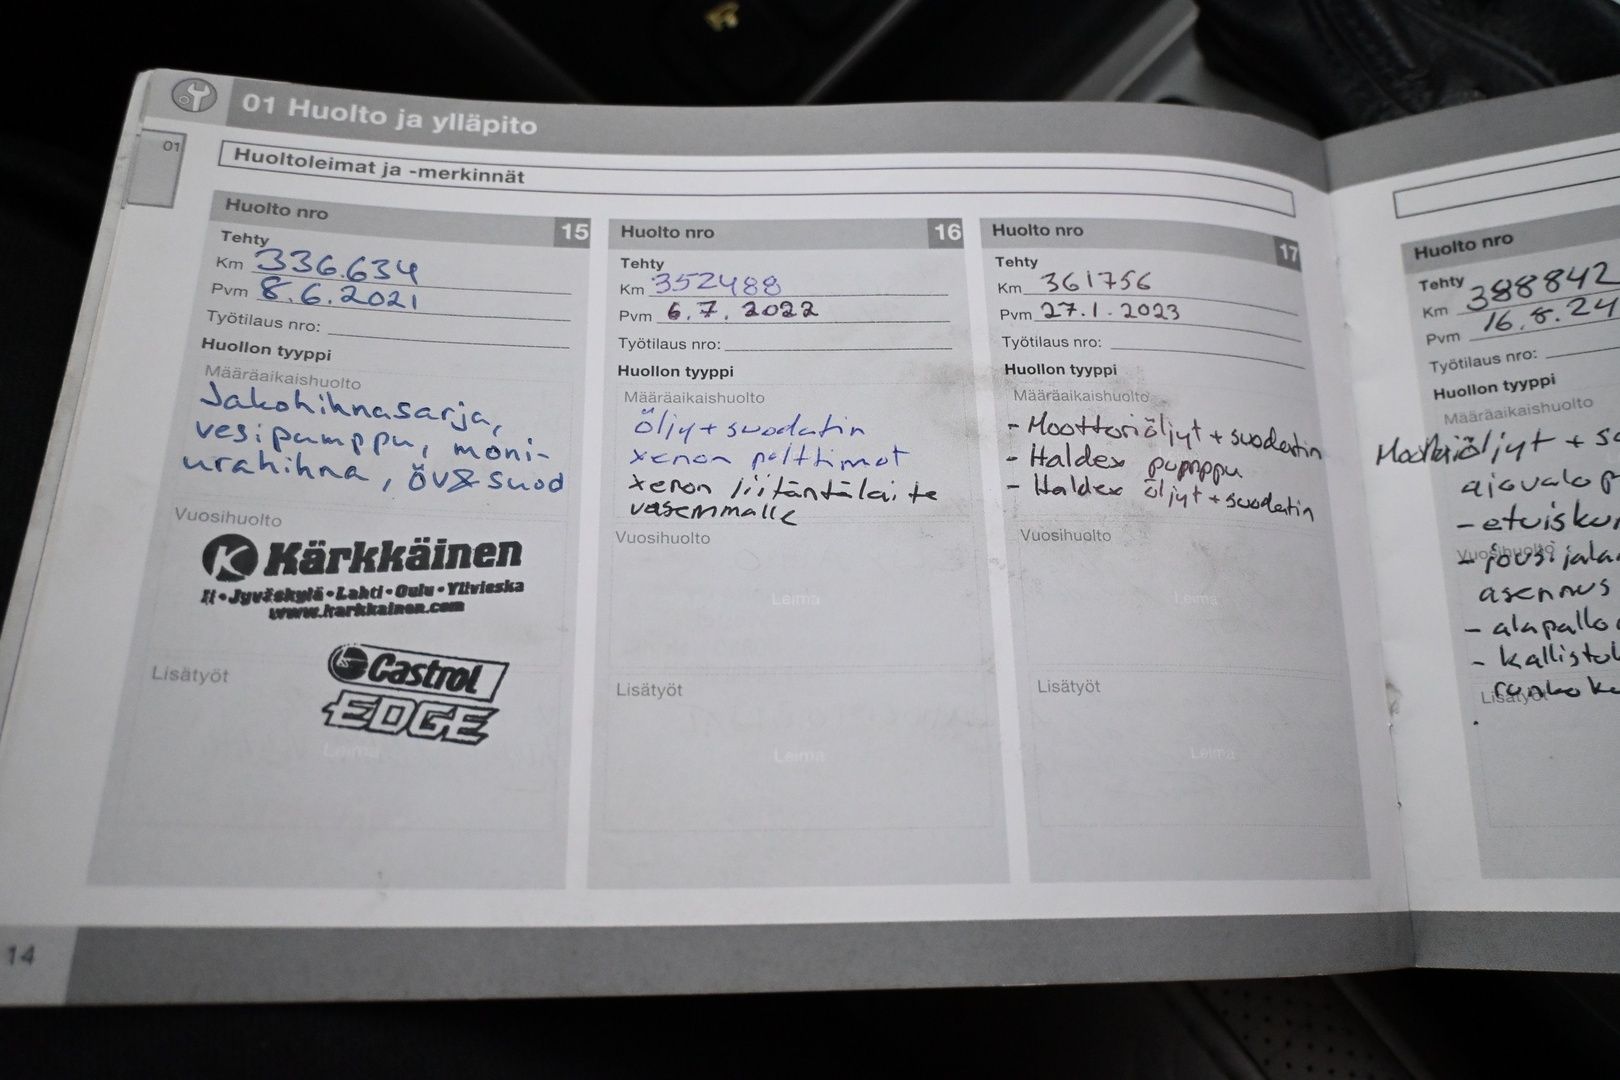 01 Huolto ja ylläpito
01
Huoltoleimat ja -merkinnät
Huolto nro 15
Tehty
Km 336.634
Pvm 8.6.2021
Työtilaus nro:
Huollon tyyppi
Määräaikaishuolto
Jakohihnasarja,
vesipumppu, moni-
urahihna, öv&suod
Vuosihuolto
K Kärkkäinen
Ii • Jyväskylä • Lahti • Oulu • Ylivieska
www.karkkainen.com
Lisätyöt
Castrol
EDGE
Leima
Huolto nro 16
Tehty
Km 352488
Pvm 6.7.2022
Työtilaus nro:
Huollon tyyppi
Määräaikaishuolto
öljy + suodatin
xenon polttimot
xenon liitäntälaite
vasemmalle
Vuosihuolto
Leima
Lisätyöt
Leima
Huolto nro 17
Tehty
Km 361756
Pvm 27.1.2023
Työtilaus nro:
Huollon tyyppi
Määräaikaishuolto
- Moottoriöljyt + suodatin
- Haldex pumppu
- Haldex öljyt + suodatin
Vuosihuolto
Leima
Lisätyöt
Leima
Huolto nro
Tehty
Km 388842
Pvm 16.8.24
Työtilaus nro:
Huollon tyyppi
Määräaikaishuolto
Moottoriöljyt +
ajovalo
- etuisku
Vuosihuolto
- jousijala
asennus
- alapallo
- kallistu
runko
Lisätyöt
14